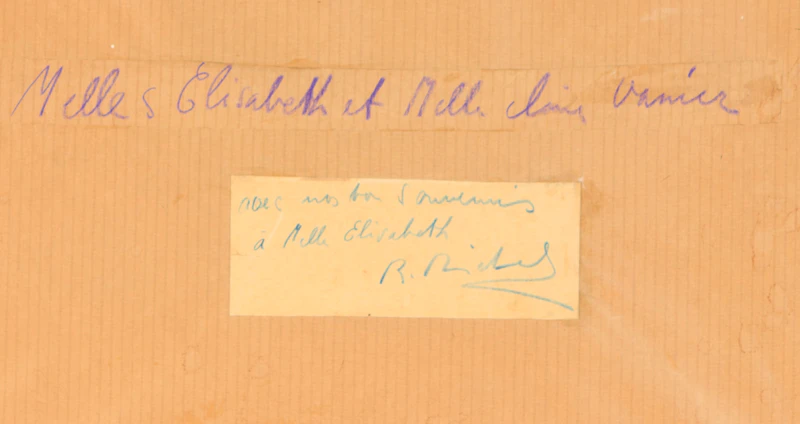 Melles Élisabeth et Melle Claire Vanier
avec nos bon Souvenirs
à Melle Elisabeth
R.